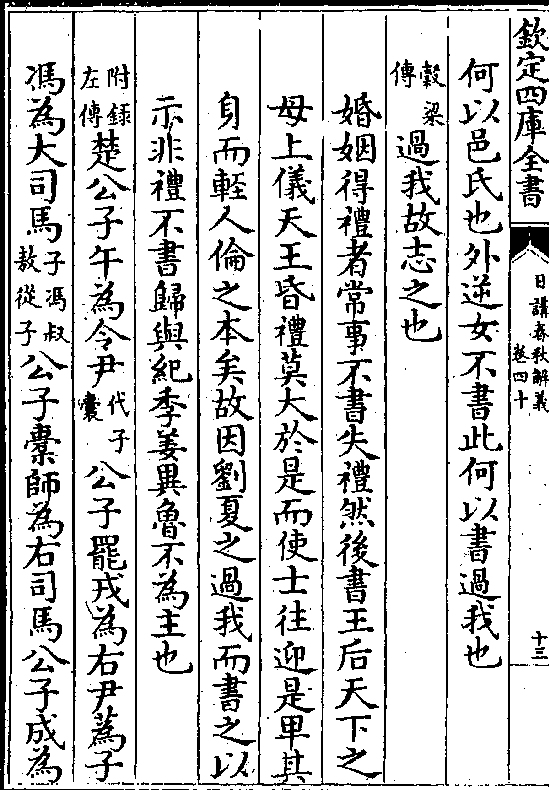 欽定四庫全書
日講春秋解義
卷四十
十三
何以邑氏也外逆女不書此何以書過我也
穀梁
傳
過我故志之也
婚姻得禮者常事不書失禮然後書王后天下之
母上儀天王昏禮莫大於是而使士往迎是卑其
身而輕人倫之本矣故因劉夏之過我而書之以
示非禮不書歸與紀季姜異魯不為主也
附錄
左傳
楚公子午為令尹
代子
囊
公子罷戎為右尹蒍子
馮為大司馬
子馮叔
敖從子
公子橐師為右司馬公子成為